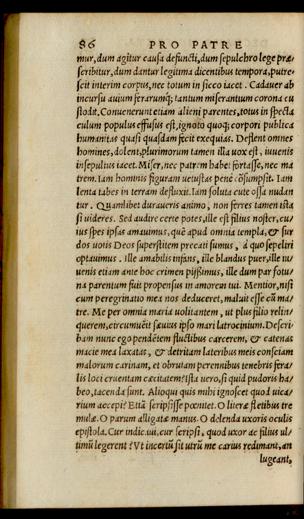 86 PRO PATRE
mur, dum agitur causa defuncti, dum sepulchro lege præ-
scribitur, dum dantur legitima dicentibus tempora, putre-
scit interim corpus, nec totum in sicco iacet. Cadauer ab
incursu auium ferarumq́; tantum miserantium corona cu
stodit. Conuenerunt etiam alieni parentes, totus in specta
culum populus effusus est, ignoto quoq; corpori publica
humanitas quasi quasdam fecit exequias. Deflent omnes
homines, dolent, plurimorum tamen illa uox est, iuuenis
insepultus iacet. Miser, nec patrem habet fortasse, nec ma
trem. Iam hominis figuram uetustas penè cõsumpsit. Iam
lenta tabes in terram defluxit. Iam soluta cute ossa nudan
tur. Quamlibet duraueris animo, non ferres tamen ista
si uideres. Sed audire certe potes, ille est filius noster, cu-
ius spes ipsas amauimus, quē apud omnia templa, & sur
dos uotis Deos superstitem precati sumus, à quo sepeliri
optauimus. Ille amabilis infans, ille blandus puer, ille iu
uenis etiam ante hoc crimen pijssimus, ille dum par fotu/
na parentum fuit propensus in amorem tui. Mentior, nisi
cum peregrinatio mea nos deduceret, maluit esse cū ma/
tre. Me per omnia maria uolitantem, ut plus filio relin/
querem, circumuēit sæuius ipso mari latrocinium. Descri-
bam nunc ego pendētem fluctibus carcerem, & catenas
macie mea laxatas, & detritam lateribus meis consciam
malorum carinam, et obrutam perennibus tenebris fera/
lis loci cruentam cæcitatem? Ista uero, si quid pudoris ha-
beo, tacenda sunt. Alioqui quis mihi ignoscet quod uica/
rium accepi? Etiā scripsisse pœnitet. O literæ flebiles tre
mulæ. O parum alligatæ manus. O delenda uxoris oculis
epistola. Cur indic.uii, cur scripsi, quod uxor ac filius ul/
timū legerent? Vt incertū sit utrū me carius redimant, an
lugeant,